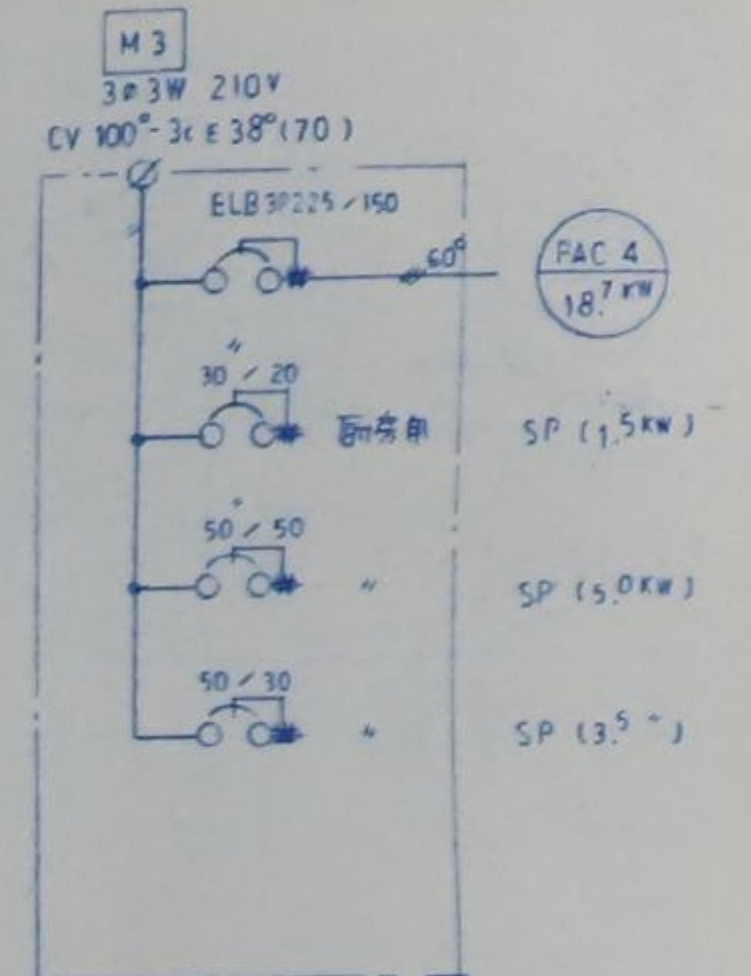 M 3
3ø 3W 210V
CV 100°-3c E 38°(70)
ELB 3P225/150
60°
PAC 4
18.7 KW
〃
30/20
厨房用
SP (1.5KW)
〃
50/50
〃
SP (5.0KW)
50/30
〃
SP (3.5 〃)